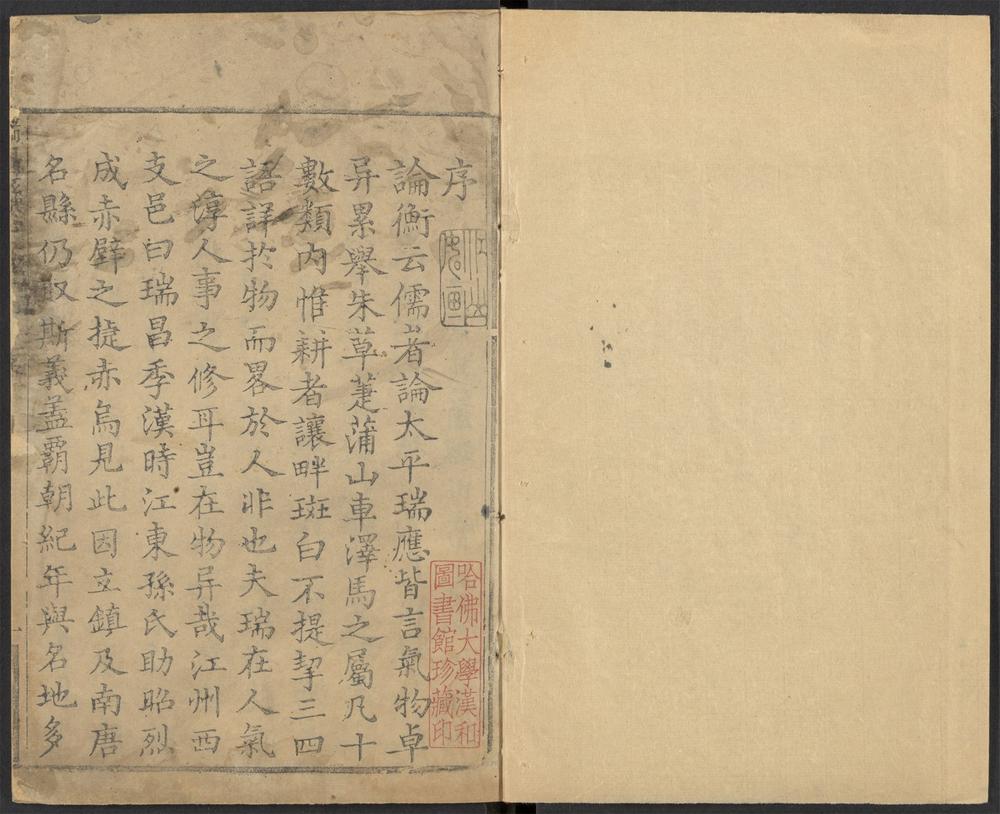 序
論衡云儒者論太平瑞應皆言氣物卓
异累舉朱草萐蒲山車澤馬之屬凡十
數類内惟耕者讓畔斑白不提挈三四
語詳扵物而畧於人非也夫瑞在人氣
之淳人事之修耳豈在物异哉江州西
支邑曰瑞昌季漢時江東孫氏助昭烈
成赤壁之捷赤烏見此因立鎮及南唐
名縣仍取斯義盖霸朝紀年與名地多
哈佛大學漢和
圖書館珍藏印